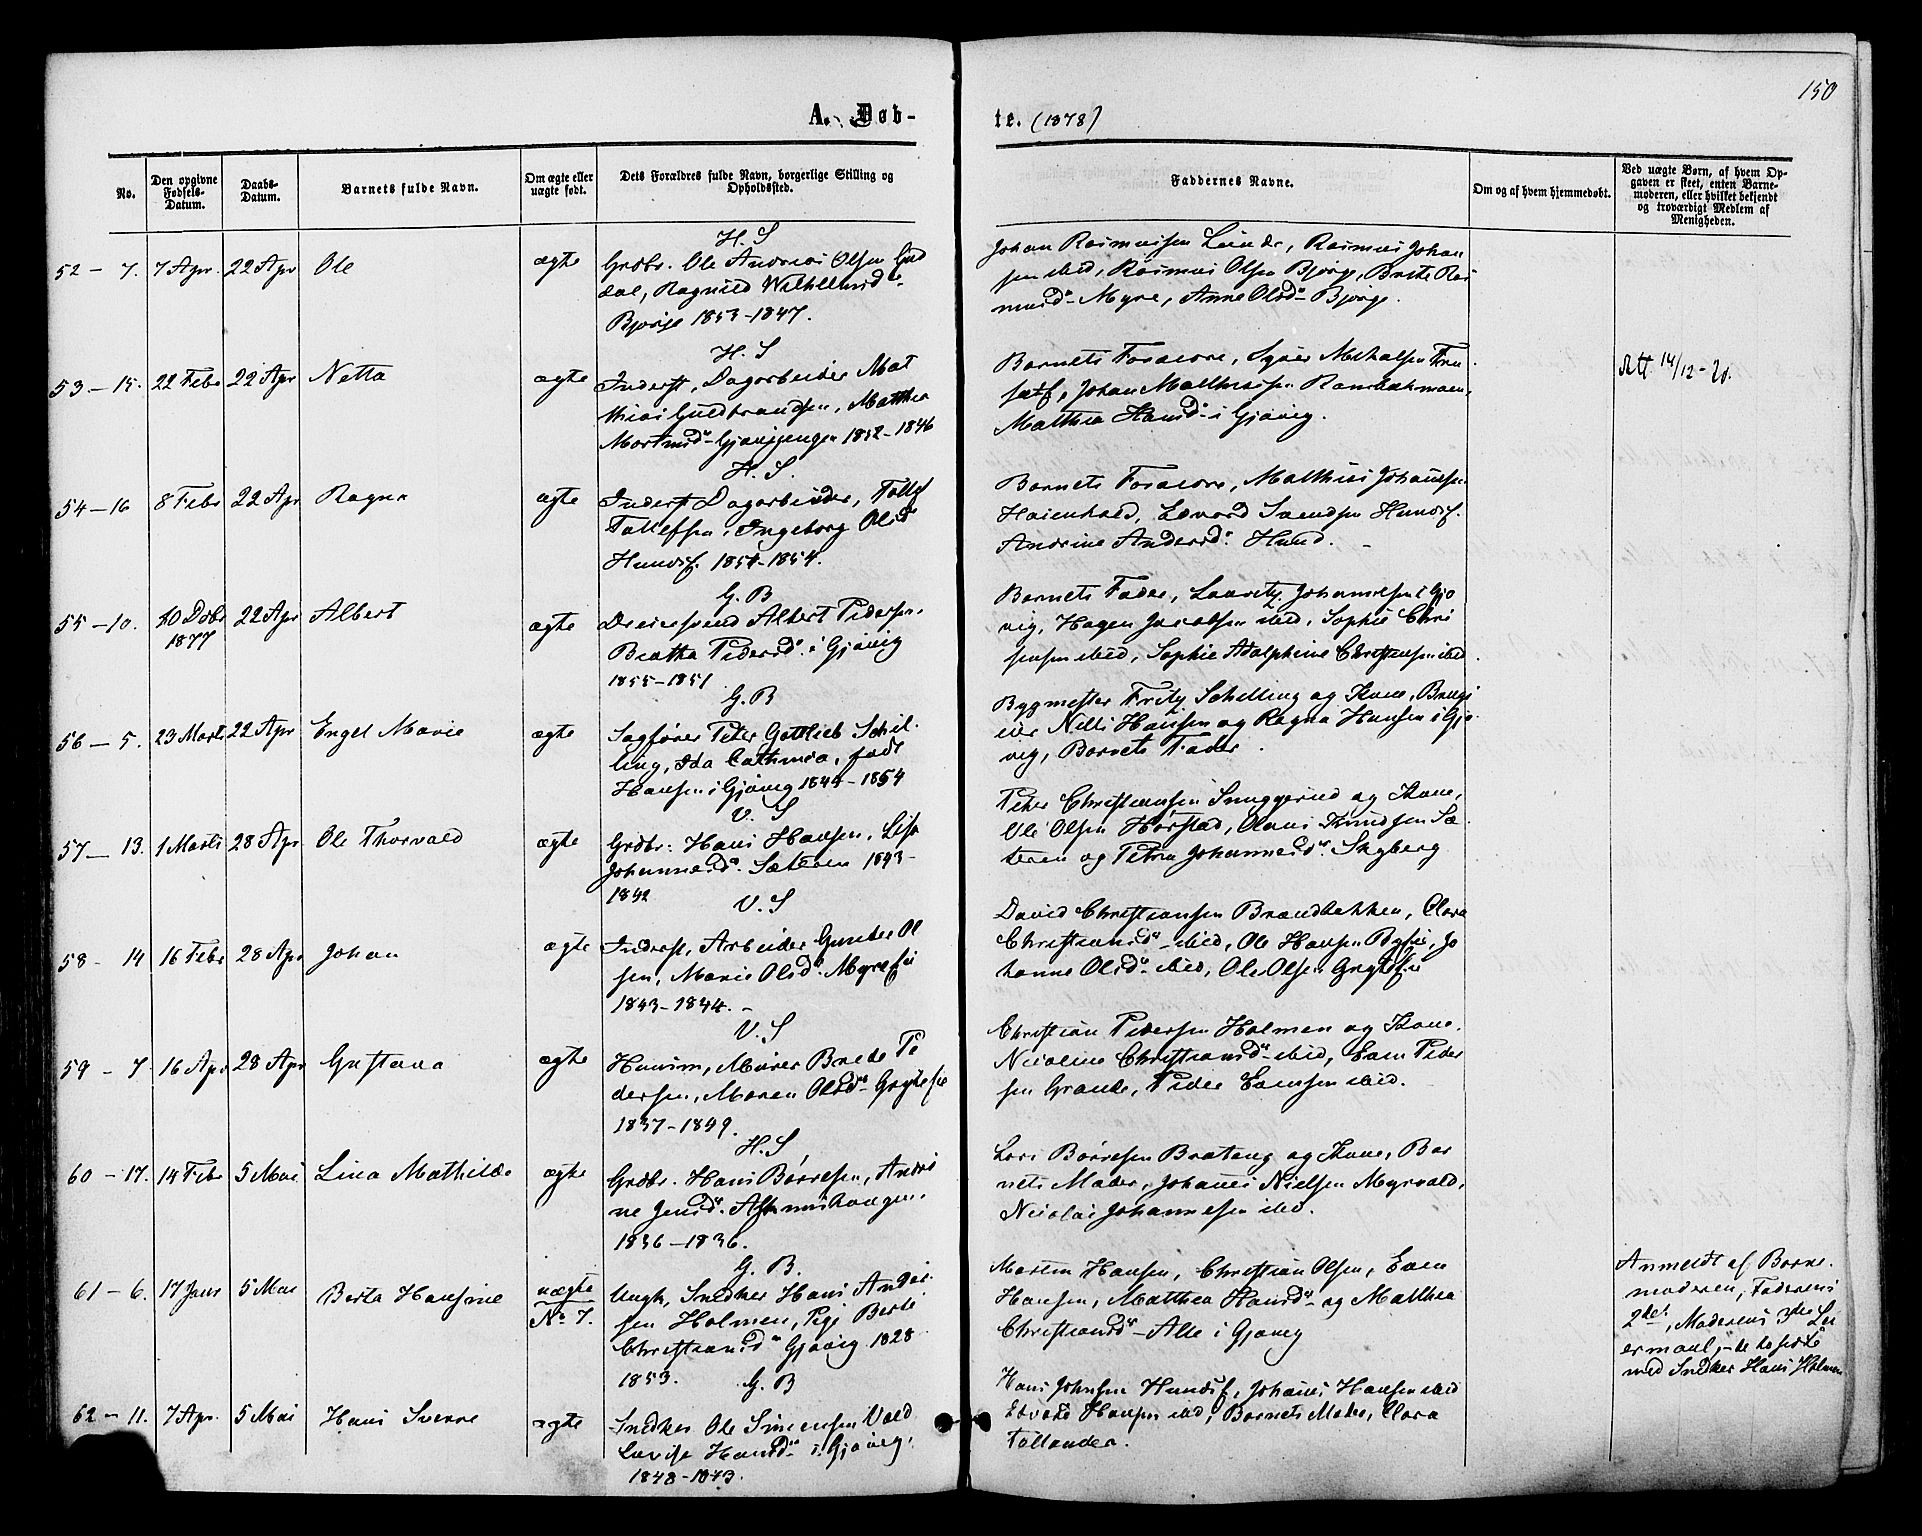 150
A. Døb-
te. (1878)
No.
Den opgivne Fødsels-Datum.
Daabs-Datum.
Barnets fulde Navn.
Om ægte eller uægte født.
Dets Forældres fulde Navn, borgerlige Stilling og Opholdssted.
Faddernes Navne.
Om og af hvem hjemmedøbt.
Ved uægte Børn, af hvem Op-
gaven er skeet, enten Barne-
moderen, eller hvilket bekjendt
og troværdigt Medlem af
Menigheden.
52 - 7. 7 Apr. 22 Apr Ole ægte
H. S
Grdbr. Ole Andreas Olsen Gud
dal, Ragnild Wilhelmsd
Bjørge 1853-1847.
Johan Rasmussen Linde, Rasmus Johan
sen ibid, Rasmus Olsen Bjørge, Brite Ras
musd Myre, Anne Olsd Bjørge.
53 - 15. 22 Febr 22 Apr Netta ægte
H. S
Inderst, Dagarbeider Mat
hias Guldbrandsen, Matthea
Mortensd Gjøvigengen 1852-1846
Barnets Forældre,
Johan Matthiassen
Matthea Hansd i Gjøvig.
14/12-20.
54 - 16 8 Febr 22 Apr Ragna ægte
H. S.
Inderst Dagarbeider, Tollef
Tollefsen, Ingeborg Olsd
Hundsf. 1854-1854.
Barnets Forældre, Matthias Johansen
Edvard Svendsen Hundsf.
Andrine Andersd Hund.
55 - 10. 20 Dcbr 1877 22 Apr Albert ægte
G. B
Dreiersvend Albert Pedersen,
Beatha Pedersd i Gjøvig
1855-1851
Barnets Fader, Lauritz Johannesen i Gjø
vig, Hagen Jacobsen ibid, Sophie Chri
stensen ibid, Sophie Adolphine Christensen ibid.
56 - 5. 23 Marts 22 Apr Engel Marie ægte
G. B
Sagfører Peter Gottlieb Schil
ling, Ida Cathinca, født
Hansen i Gjøvig 1844-1854
Bygmester Fritz Schilling og Kone,
Nils Hansen og Ragna Hansen i Gjø
vig, Barnets Fader.
57 - 13. 1 Marts 28 Apr Ole Thorvald ægte
V. S
Grdbr. Hans Hansen, Lise
Johannesd Sæteren 1843-
1842
Peter Christiansen Snuggerud og Kone,
Ole Olsen Hørstad, Olaus Knudsen Sæ
teren og Petra Johannesd Skyberg
58 - 14 16 Febr 28 Apr Johan ægte
V. S
Inderst, Arbeider Gunder Ol
sen, Marie Olsd
1843-1844.
David Christiansen Brændbakken, Clara
Christiansd ibid, Ole Hansen Jo
hanne Olsd ibid, Ole Olsen
59 - 7. 16 Apr 28 Apr Gustava ægte
V. S
Husm, Murer Brede Pe
dersen, Maren Olsd
1837-1849.
Christian Pedersen Holmen og Kone.
Nicoline Christiansd ibid, Even Peder
sen Grande, Peder Evensen ibid.
60 - 17. 14 Febr 5 Mai Lina Mathilde ægte
H. S
Grdbr. Hans Børresen, Andri
ne Jensd
1836-1836.
Lars Børresen Brateng og Kone, Bar
nets Moder, Johanes Nielsen Myrvold,
Nicolai Johannesen ibid.
61 - 6. 17 Janr 5 Mai Berta Hansine uægte
No 7.
G. B.
Ungk, Snedker Hans Andre
sen Holmen, Pige Berte
Christiansd Gjøvig 1828
1853.
Morten Hansen, Christian Olsen, Even
Hansen, Matthea Hansd og Mathea
Christiansd Alle i Gjøvig
Anmeldt af Barne
moderen, Faderens
2det, Moderens 3die Lei
ermaal,
med Snedker Hans Holmen
62 - 11. 7 Apr. 5 Mai Hans Sverre ægte
G. B
Snedker Ole Simensen Vold
Lovise Hansd i Gjøvig,
1848-1843.
Hans Johnsen Hundsf, Johanes Hansen ibid
Edvard Hansen ibid, Barnets Moder, Clara
Tollander.